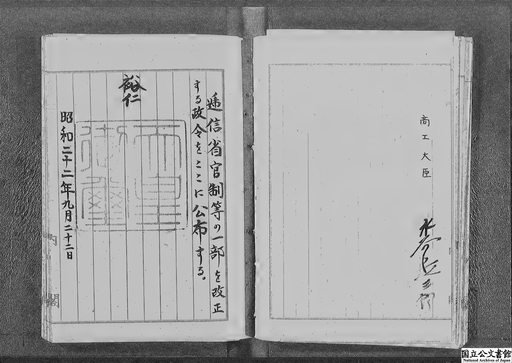 商工大臣
遞信省官制等の一部を改正
する政令をここに公布する。
裕仁
天皇
御璽
昭和二十二年九月二十二日
内閣
国立公文書館
National Archives of Japan